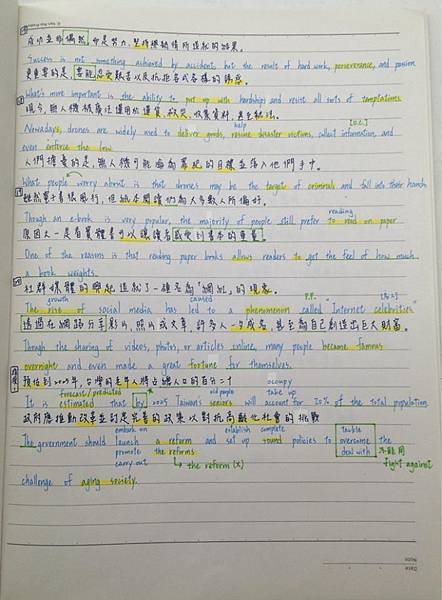 成功並非偶然，而是努力、堅持與熱情所造就的結果。
Success is not something achieved by accident, but the result of hard work, perseverance, and passion.
更重要的是，忍受艱苦以及抗拒各式各樣的誘惑。
What's more important is the ability to put up with hardships and resist all sorts of temptations.
現今，無人機被廣泛運用於運貨、救災、收集資料，甚至執法。
help [U.C.]
Nowadays, drones are widely used to deliver goods, rescue disaster victims, collect information, and
even enforce the law.
人們擔憂的是，無人機可能淪為罪犯的目標並落入他們手中。
What people worry about is that drones may be the target of criminals and fall into their hands.
雖然電子書很流行，但紙本閱讀仍為大多數人所偏好。
reading
Though an e-book is very popular, the majority of people still prefer to read on paper.
原因之一是看實體書可以讓讀者感受到書本的重量。
One of the reasons is that reading paper books allows readers to get the feel of how much
a book weights.
社群媒體的興起造就了一種名為「網紅」的現象。
growth caused P.P.
The rise of social media has led to a phenomenon called Internet celebrities
透過在網路分享影片、照片或文章，許多人一夕成名，甚至為自己創造出巨大財富。
Though the sharing of videos, photos, or articles online, many people became famous
overnight and even made a great fortune for themselves.
預估到2025年，台灣的老年人將占總人口的百分之二十
forecast / predicted old people occupy
take up
It is estimated that by 2025 Taiwan's seniors will account for 20% of the total population.
政府應推動改革並制定完善的政策以對抗高齡化社會的挑戰
embark on establish complete tackle
The government should launch a reform and set up sound policies to overcome the
promote the reforms deal with 不能用
carry out the reform (x) fight against
challenge of aging society.
Date
Note